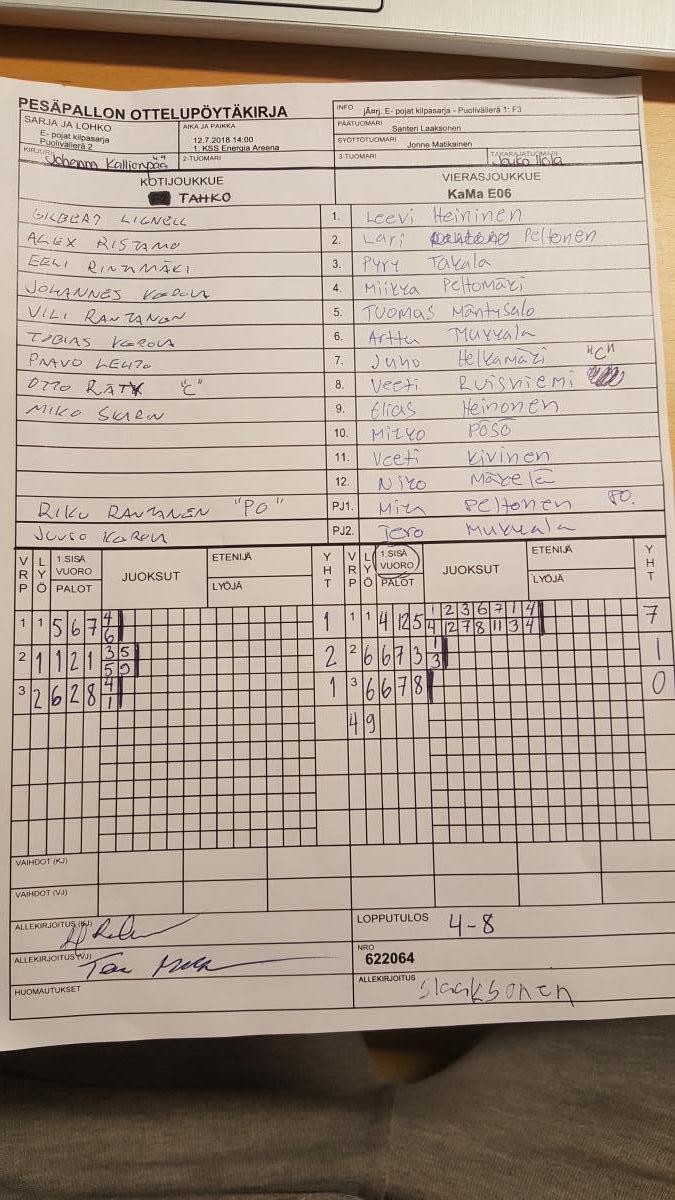 PESÄPALLON OTTELUPÖYTÄKIRJA
INFO jÄ¤rj. E- pojat kilpasarja - Puolivälierä 1: F3
SARJA JA LOHKO
E- pojat kilpasarja
Puolivälierä 2
AIKA JA PAIKKA
12.7.2018 14:00
1. KSS Energia Areena
PÄÄTUOMARI Santeri Laaksonen
SYÖTTÖTUOMARI Jonne Matikainen
KIRJURI Johanna Kallienpää
2-TUOMARI
3-TUOMARI
TAKARAJATUOMARI Jouko Ilola
KOTIJOUKKUE
TAHKO
VIERASJOUKKUE
KaMa E06
GILBERT LIGNELL 1. Leevi Heininen
ALEX RISTAMO 2. Lari Peltonen
EELI RINTAMÄKI 3. Pyry Takala
JOHANNES KOROLA 4. Miikka Peltomäki
VILI RANTANEN 5. TUOMAS Mäntysalo
TOBIAS KOROLA 6. Arttu Mukkala
PAAVO LEHTO 7. Juho Helkamäki "C"
OTTO RÄTY "C" 8. Veeti Ruisniemi
MIKO 9. Elias Heinonen
10. Mikko Pösö
11. Veeti Kivinen
12. Niko Mäkelä
RIKU RANTANEN "PO" PJ1. Mika Peltonen
JUUSO KOROLA PJ2. Tero Mukkala
VRP LYÖ 1.SISÄ VUORO PALOT JUOKSUT ETENIJÄ LYÖJÄ YHT VRP LYÖ 1.SISÄ VUORO PALOT JUOKSUT ETENIJÄ LYÖJÄ YHT
1 1 5 6 7 4 1 1 1 4 12 5 1 2 3 6 7 1 4 7
6 4 12 7 8 11 3 4
2 1 1 2 1 3 5 2 2 6 6 7 3 1 1
5 9 3
3 2 6 2 8 4 1 3 6 6 7 8 0
1
4 9
VAIHDOT (KJ)
VAIHDOT (VJ)
ALLEKIRJOITUS (KJ)
LOPPUTULOS 4-8
ALLEKIRJOITUS (VJ)
NRO
622064
HUOMAUTUKSET
ALLEKIRJOITUS slaaksonen